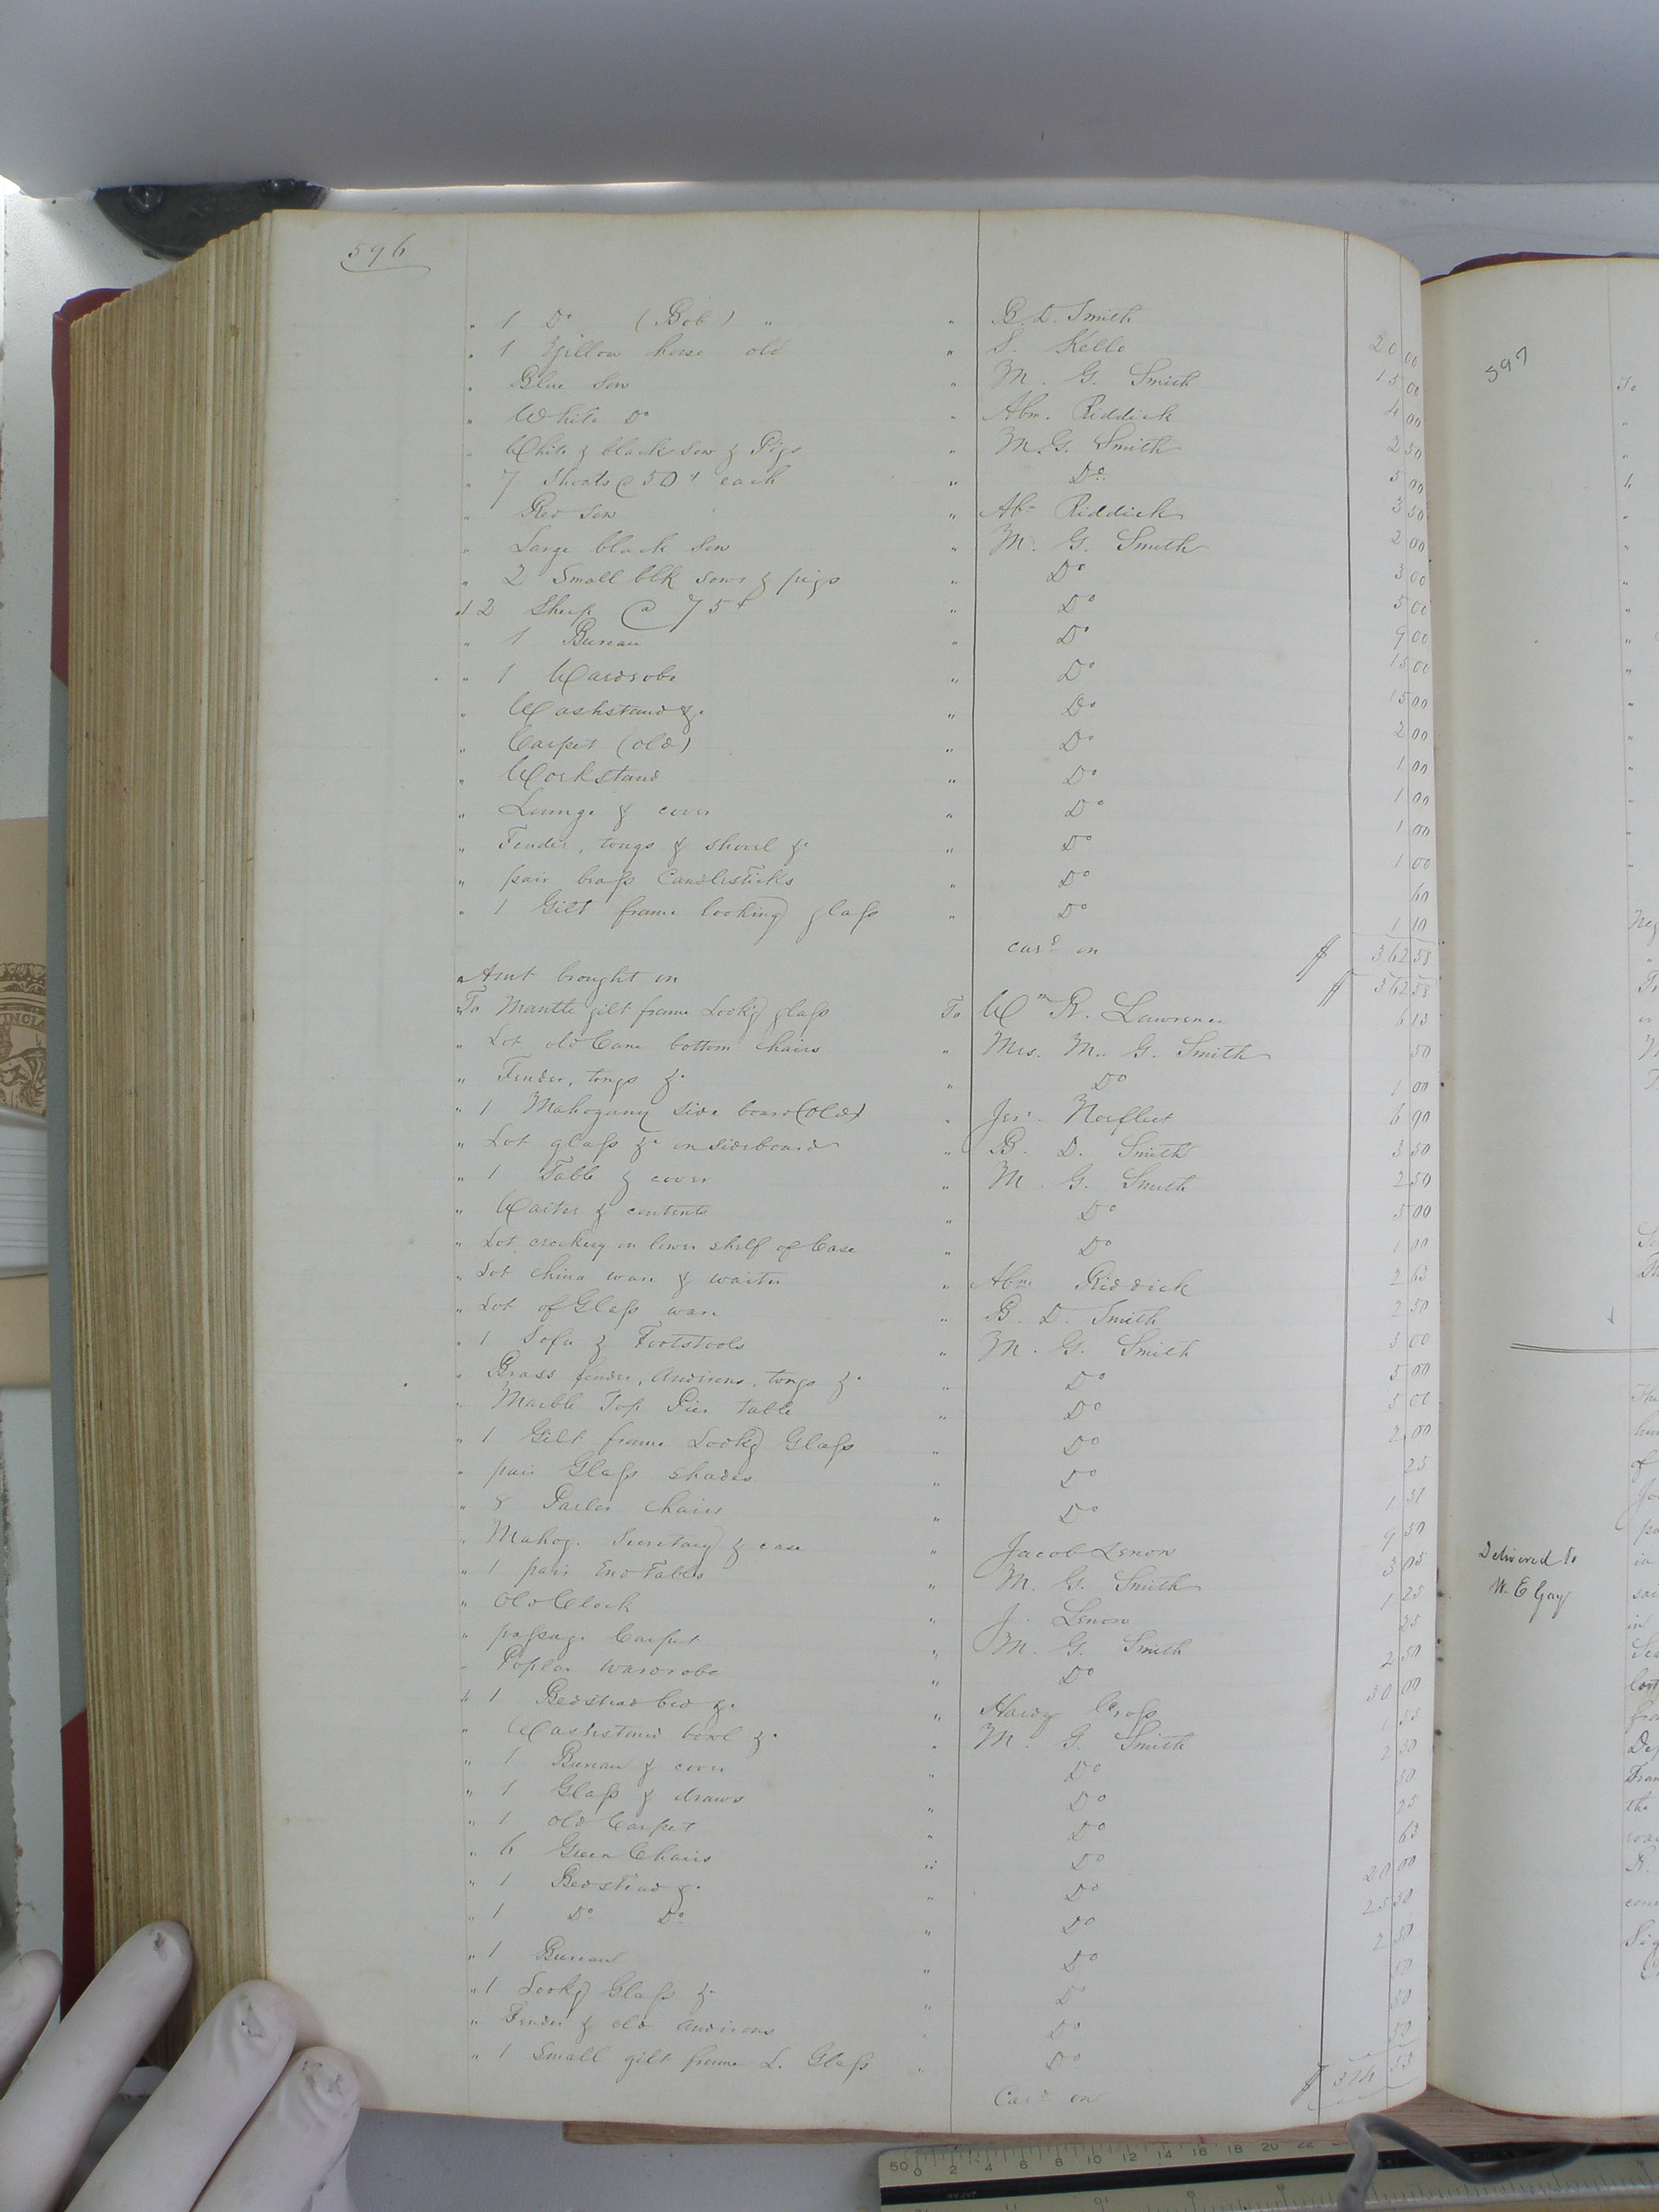 596
" 1 Do (Bob) " " B. D. Smith 20 00
" 1 yillow horse old " S. Kello 15 00
" Blue Sow " M. G. Smith 4 00
" White Do " Abm. Riddick 2 50
" White & black Sow & Pigs " M. G. Smith 5 00
" 7 Shoats @ 50 ¢ each " Do 3 50
" Red Sow " Abm Riddick 2 00
" Large black Sow " M. G. Smith 3 00
" 2 Small blk sows & pigs " Do 5 00
" 12 Sheep @ 75 ¢ " Do 9 00
" 1 Bureau " Do 15 00
" 1 Wardrobe " Do 15 00
" Washstand &c " Do 2 00
" Carpet (old) " Do 1 00
" Workstand " Do 1 00
" Lounge & cover " Do 1 00
" Fender, tongs & shovel &c " Do 1 00
" pair brass Candlesticks " Do 60
" 1 Gilt frame looking glass " Do 1 10
card on $ 362 58
" Amt brought on $ 362 58
To Mantle gilt frame Lookg glass To Wm R. Lawrence 6 13
" Lot old Cane bottom chairs " Mrs. M. G. Smith 50
" Fender, tongs &c " Do 1 00
" 1 Mahogany side board (old) " Jes. Norfleet 6 90
" Lot glass &c on sideboard " B. D. Smith 3 50
" 1 Table & cover " M. G. Smith 2 50
" Waiter & contents " Do 5 00
" Lot crockery on lower shelf of Case " Do 1 00
" Lot china ware & waiter " Abm Riddick 2 63
" Lot of Glass ware " B. D. Smith 2 50
" 1 Sofa & Footstools " M. G. Smith 3 00
" Brass fender, Andirons, tongs &c " Do 5 00
" Marble Top Pier table " Do 5 00
" 1 Gilt frame Lookg Glass " Do 2 00
" pair Glass shades " Do 25
" 8 Parlor chairs " Do 1 51
" Mahog. Secretary & case " Jacob Lenow 9 50
" 1 pair End Tables " M. G. Smith 3 05
" Old Clock " J. Lenow 1 25
" passage Carpet " M. G. Smith 25
" Poplar wardrobe " Do 2 50
" 1 Bedstead bed &c " Hardy Cross 30 00
" Washstand bowl &c " M. G. Smith
" 1 Bureau & cover " Do 2 50
" 1 Glass & draws " Do 50
" 1 old Carpet " Do 25
" 6 Green Chairs " Do 63
" 1 Bedstead &c " Do 20 00
" 1 Do Do " Do 25 50
" 1 Bureau " Do 2 50
" 1 Lookg Glass &c " Do 50
" Fender & old andirons " Do 50
" 1 Small gilt frame L. Glass " Do 50
Card on $
597
To
Delivered to
W. E Gay
50 0 2 4 6 8 10 12 14 16 18 20 22
JAPAN